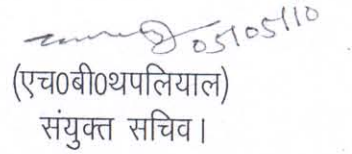 05/05/10
(एच0बी0थपलियाल)
संयुक्त सचिव।